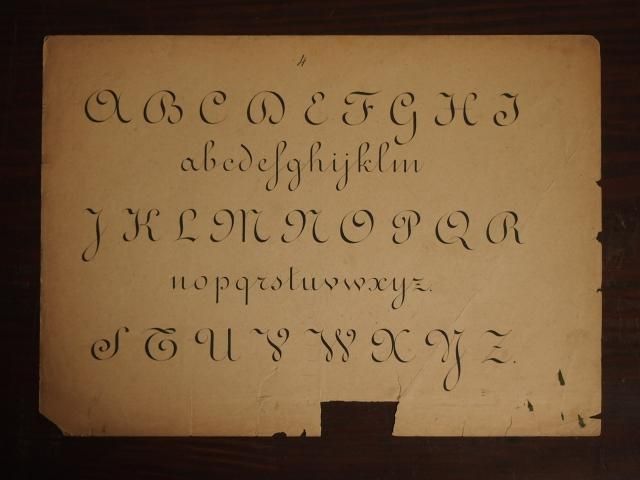 4
A B C D E F G H I
abcdefghijklm
J K L M N O P Q R
nopqrstuvwxyz.
S T U V W X Y Z.